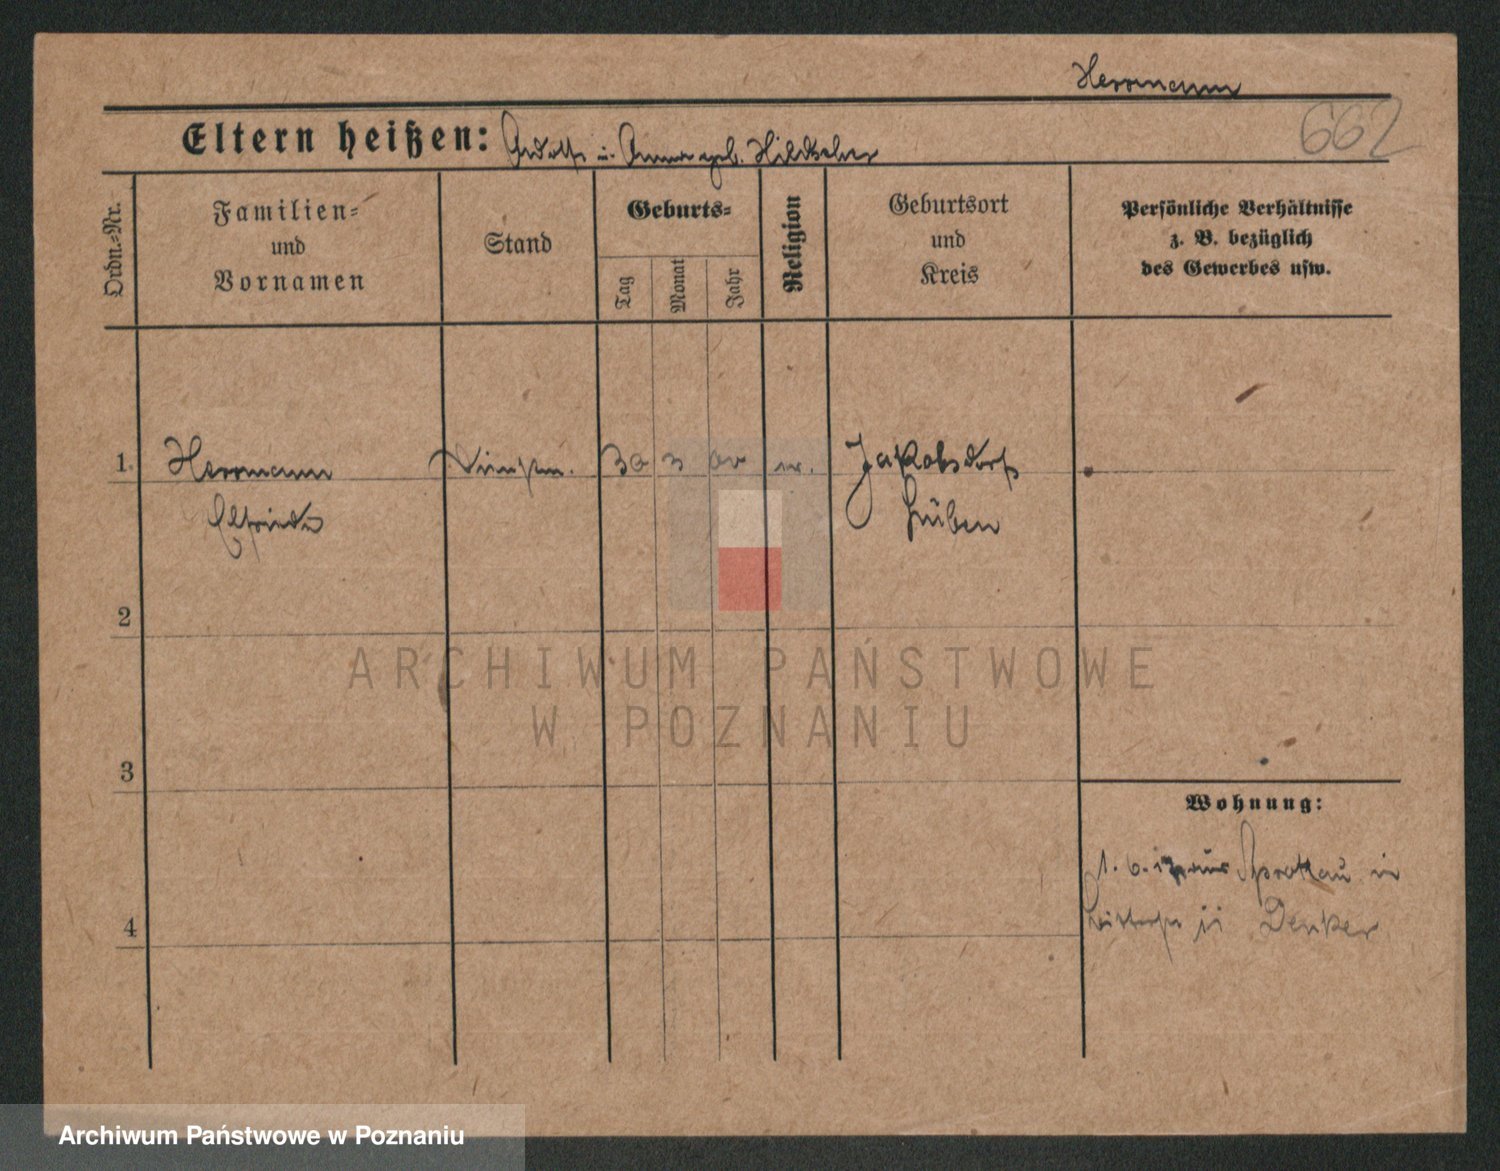 Herrmann
662
Eltern heißen: u. Anna geb.
Ordn.-Nr.
Familien-
und
Vornamen
Stand
Geburts-
Tag
Monat
Jahr
Religion
Geburtsort
und
Kreis
Persönliche Verhältnisse
z. B. bezüglich
des Gewerbes usw.
1. Herrmann 30 3 00 ev. Jakobsdorf
Elfriede Lüben
2
ARCHIWUM PAŃSTWOWE
W POZNANIU
3
Wohnung:
1. 6. 17 aus Sprottau in
4
Denker
Archiwum Państwowe w Poznaniu